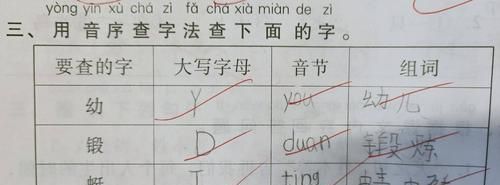 yòng yīn xù chá zì fǎ chá xià miàn de zì
三、用音序查字法查下面的字。
要查的字 大写字母 音节 组词
幼 Y you 幼儿
锻 D duan 锻炼
蜓 T ting 蜻